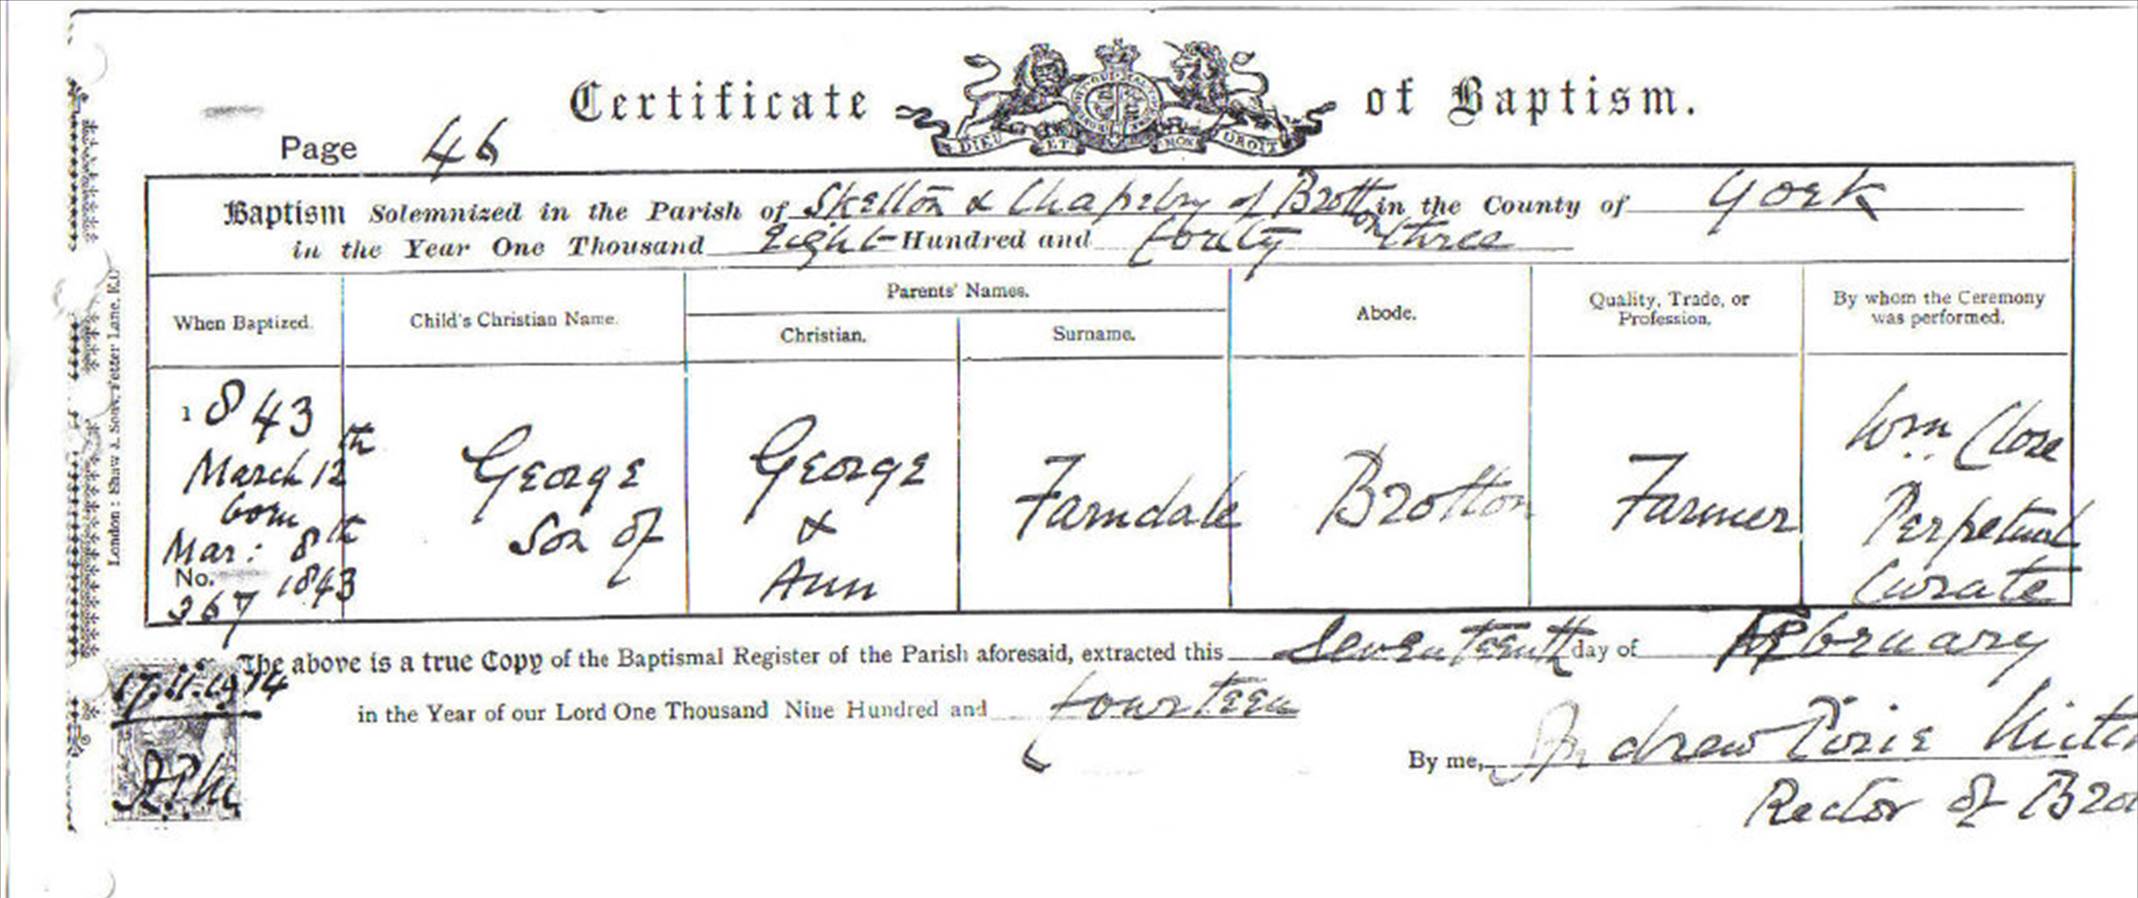 Certificate of Baptism.
DIEU ET MON DROIT
Page 46
Baptism Solemnized in the Parish of Skelton & Chapelry of Brotton in the County of York
in the Year One Thousand Eight Hundred and forty three
When Baptized.
Child's Christian Name.
Parents' Names.
Christian.
Surname.
Abode.
Quality, Trade, or
Profession.
By whom the Ceremony
was performed.
1843
March 12th
born
Mar: 8th
1843
No.
367
George
Son of
George
&
Ann
Farndale
Brotton
Farmer
Wm. Close
Perpetual
Curate
The above is a true Copy of the Baptismal Register of the Parish aforesaid, extracted this Seventeenth day of February
in the Year of our Lord One Thousand Nine Hundred and fourteen
By me, Andrew Pirie
Rector of Bro
17.II.1914
London: Shaw & Sons, Fetter Lane, E.C